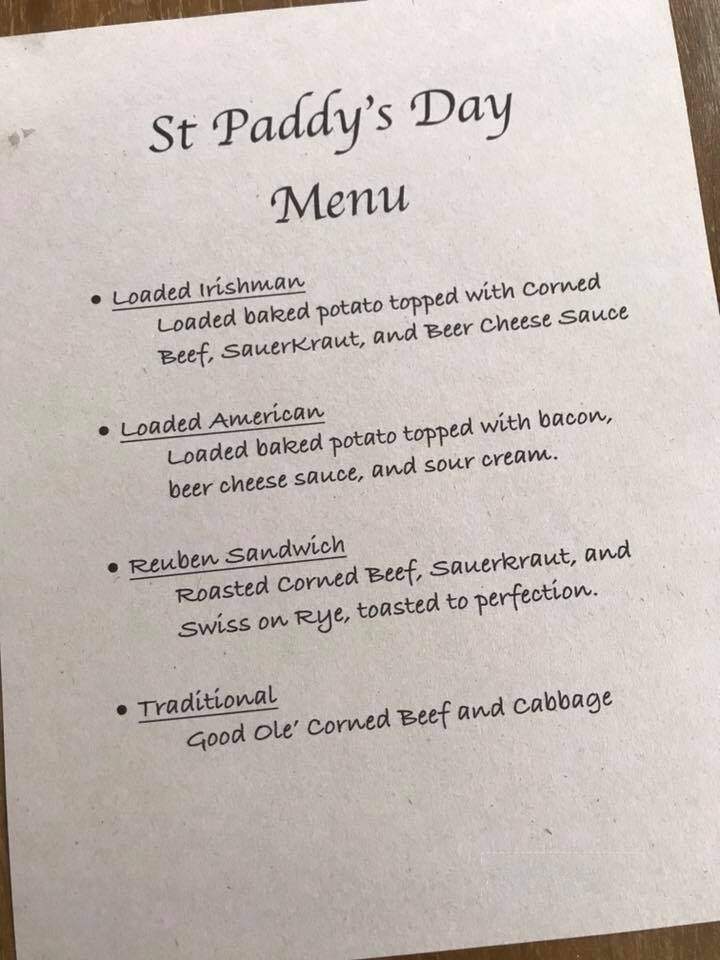 St Paddy's Day
Menu
• Loaded Irishman
Loaded baked potato topped with Corned
Beef, Sauerkraut, and Beer Cheese Sauce
• Loaded American
Loaded baked potato topped with bacon,
beer cheese sauce, and sour cream.
• Reuben Sandwich
Roasted Corned Beef, Sauerkraut, and
Swiss on Rye, toasted to perfection.
• Traditional
Good Ole' Corned Beef and Cabbage